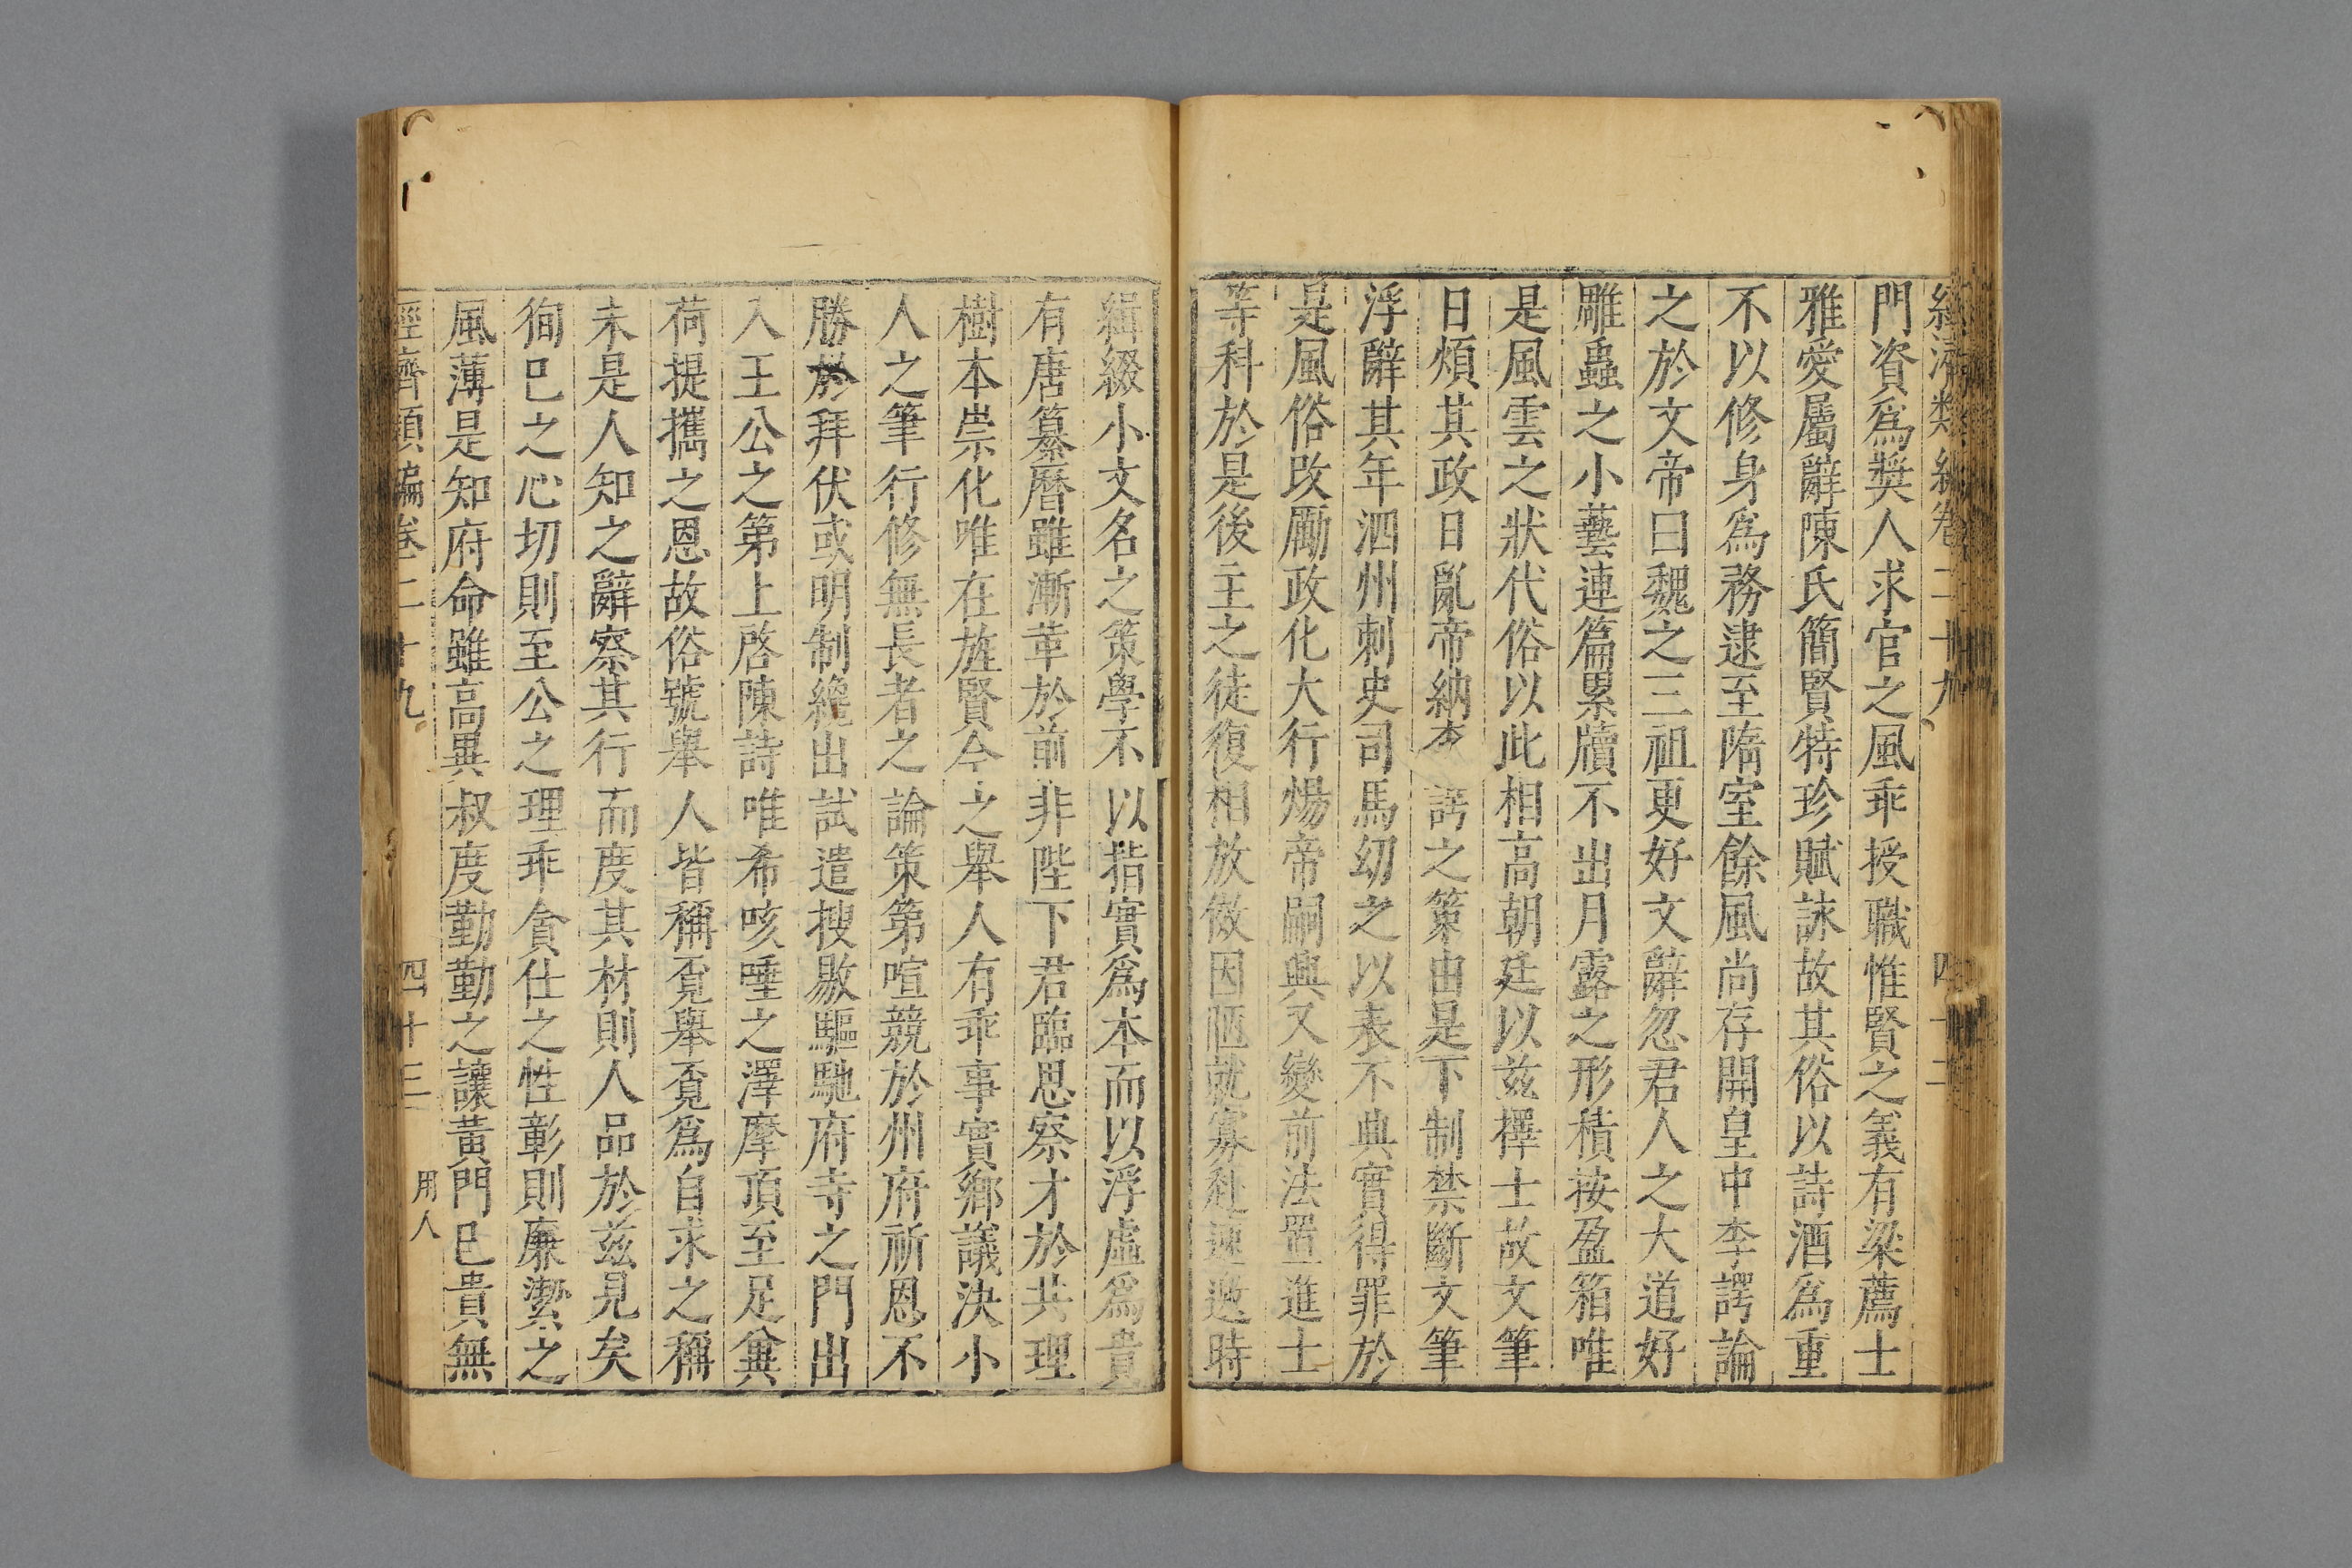 經濟類編卷二十九 四十二
門資爲奬人求官之風乖授職惟賢之義有梁薦士
雅愛屬辭陳氏簡賢特珍賦詠故其俗以詩酒爲重
不以修身爲務逮至隋室餘風尚存開皇中李諤論
之於文帝曰魏之三祖更好文辭忽君人之大道好
雕蟲之小藝連篇累牘不出月露之形積按盈箱唯
是風雲之狀代俗以此相高朝廷以茲擇士故文筆
日煩其政日亂帝納李諤之策由是下制禁斷文筆
浮辭其年泗州刺史司馬幼之以表不典實得罪於
是風俗改勵政化大行煬帝嗣興又變前法置進士
等科於是後主之徒復相放傚因陋就寡赴速邀時
緝綴小文名之策學不以指實爲本而以浮虛爲貴
有唐纂曆雖漸革於前非陛下君臨思察才於共理
樹本崇化唯在旌賢今之舉人有乖事實鄉議決小
人之筆行修無長者之論策第喧競於州府祈恩不
勝於拜伏或明制纔出試遣搜敭驅馳府寺之門出
入王公之第上啓陳詩唯希咳唾之澤摩頂至足兾
荷提攜之恩故俗號舉人皆稱覔舉覔爲自求之稱
未是人知之辭察其行而度其材則人品於茲見矣
徇巳之心切則至公之理乖貪仕之性彰則廉潔之
風薄是知府命雖高異叔度勤勤之讓黃門巳貴無
經濟類編卷二十九 四十三 用人